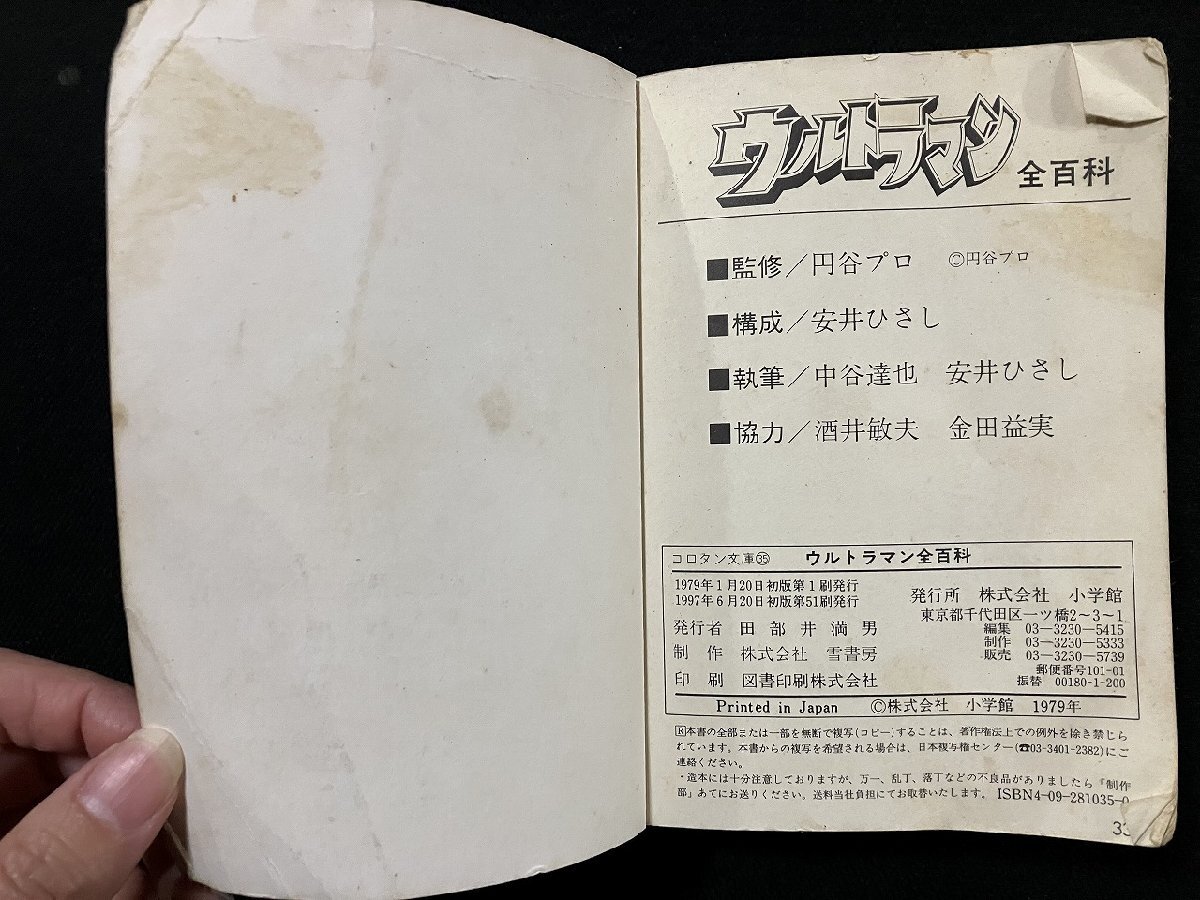 ウルトラマン 全百科
■監修／円谷プロ ©円谷プロ
■構成／安井ひさし
■執筆／中谷達也 安井ひさし
■協力／酒井敏夫 金田益実
コロタン文庫㉟ ウルトラマン全百科
1979年1月20日初版第1刷発行
1997年6月20日初版第51刷発行
発行者 田部井満男
制作 株式会社 雪書房
印刷 図書印刷株式会社
発行所 株式会社 小学館
東京都千代田区一ツ橋2～3～1
編集 03—3230—5415
制作 03—3230—5333
販売 03—3230—5739
郵便番号101-01
振替 00180-1-200
Printed in Japan ©株式会社 小学館 1979年
🅁本書の全部または一部を無断で複写(コピー)することは、著作権法上での例外を除き禁じら
れています。本書からの複写を希望される場合は、日本複写権センター(☎03-3401-2382)にご
連絡ください。
・造本には十分注意しておりますが、万一、乱丁、落丁などの不良品がありましたら「制作
部」あてにお送りください。送料当社負担にてお取替いたします。 ISBN4-09-281035-0